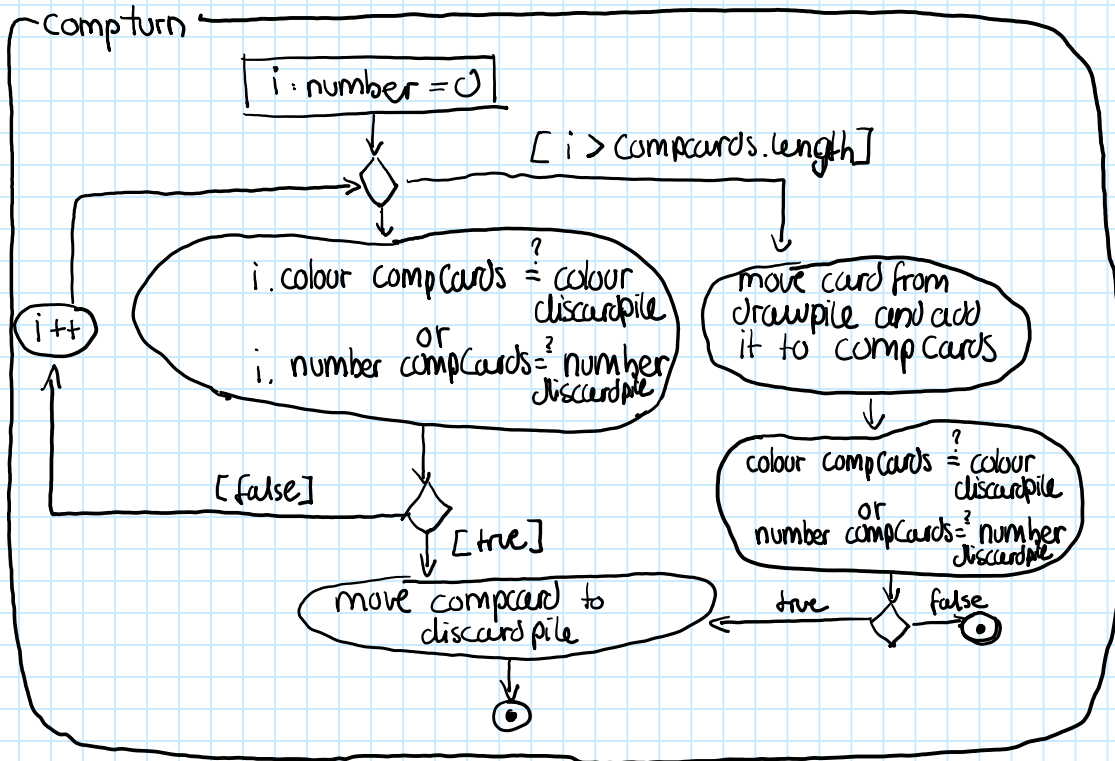 compturn
i : number = 0
[ i > compcards.length]
i. colour compCards =? colour
discardpile
or
i. number compCards =? number
discardpile
i ++
move card from
drawpile and add
it to compCards
colour compCards =? colour
discardpile
or
number compCards =? number
discardpile
[false]
[true]
move compcard to
discardpile
true
false